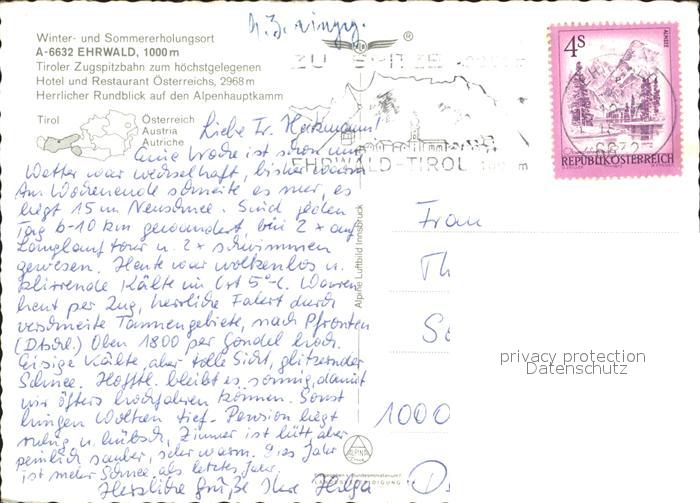 Winter- und Sommererholungsort
A-6632 EHRWALD, 1000 m
Tiroler Zugspitzbahn zum höchstgelegenen
Hotel und Restaurant Österreichs, 2968 m
Herrlicher Rundblick auf den Alpenhauptkamm
Tirol
Österreich
Austria
Autriche
EHRWALD-TIROL
4S
REPUBLIK ÖSTERREICH
6632
Liebe Fr.
Eine Woche ist schon um,
Wetter war wechselhaft, bisher warm
Am Wochenende schneite es mer, es
liegt 15 cm Neuschnee. Sind jeden
Tag 6-10 km gewandert, bei 2 x auf
Langlauftour u. 2 x schwimmen
gewesen. Heute war wolkenlos u.
klirrende Kälte im Ort 5°C. Waren
heut per Zug, herrliche Fahrt durch
verschneite Tannengebiete, nach Pfronten
(Dtschl.) Oben 1800 per Gondel hoch.
Eisige Kälte, aber tolle Sicht, glitzernder
Schnee. Hofftl. bleibt es sonnig, damit
wir öfters hochfahren können. Sonst
hingen Wolken tief. Pension liegt
ruhig u. hübsch, Zimmer ist aber
peinlich sauber, sehr warm. Dies Jahr
ist mehr Schnee als letztes Jahr.
Herzliche Grüße Ihre Helga
Alpine Luftbild Innsbruck
Frau
Th
1000
privacy protection
Datenschutz
ALPINE